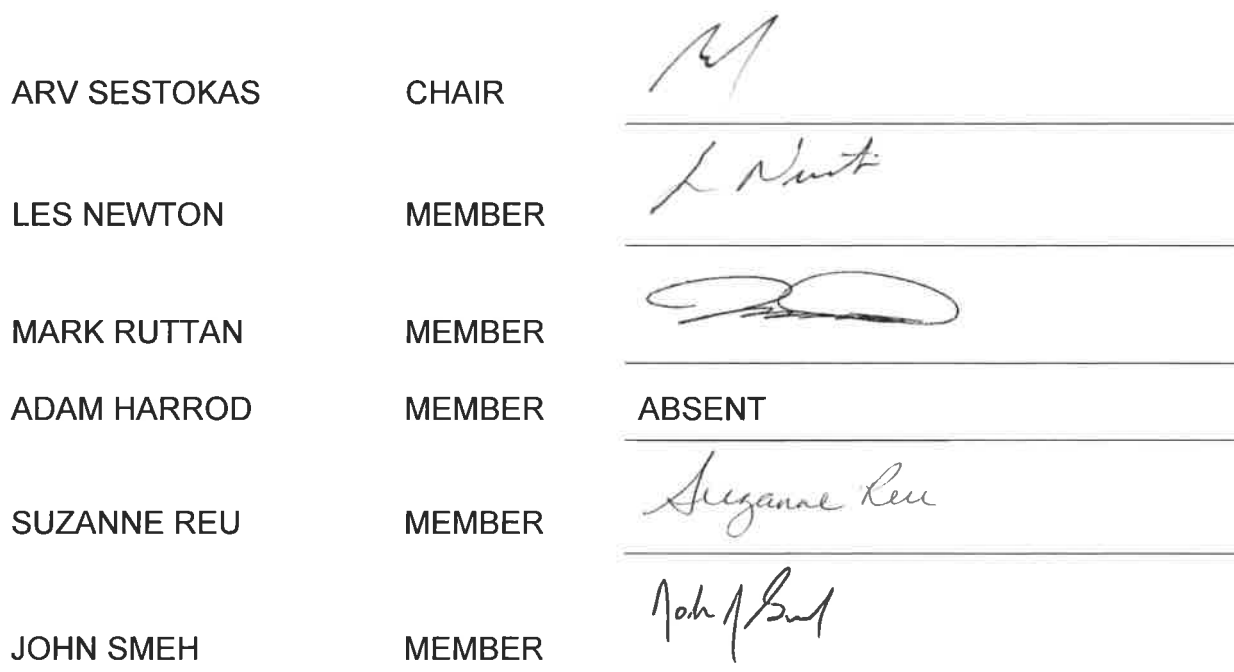 ARV SESTOKAS CHAIR
LES NEWTON MEMBER L Newton
MARK RUTTAN MEMBER
ADAM HARROD MEMBER ABSENT
SUZANNE REU MEMBER Suzanne Reu
JOHN SMEH MEMBER John